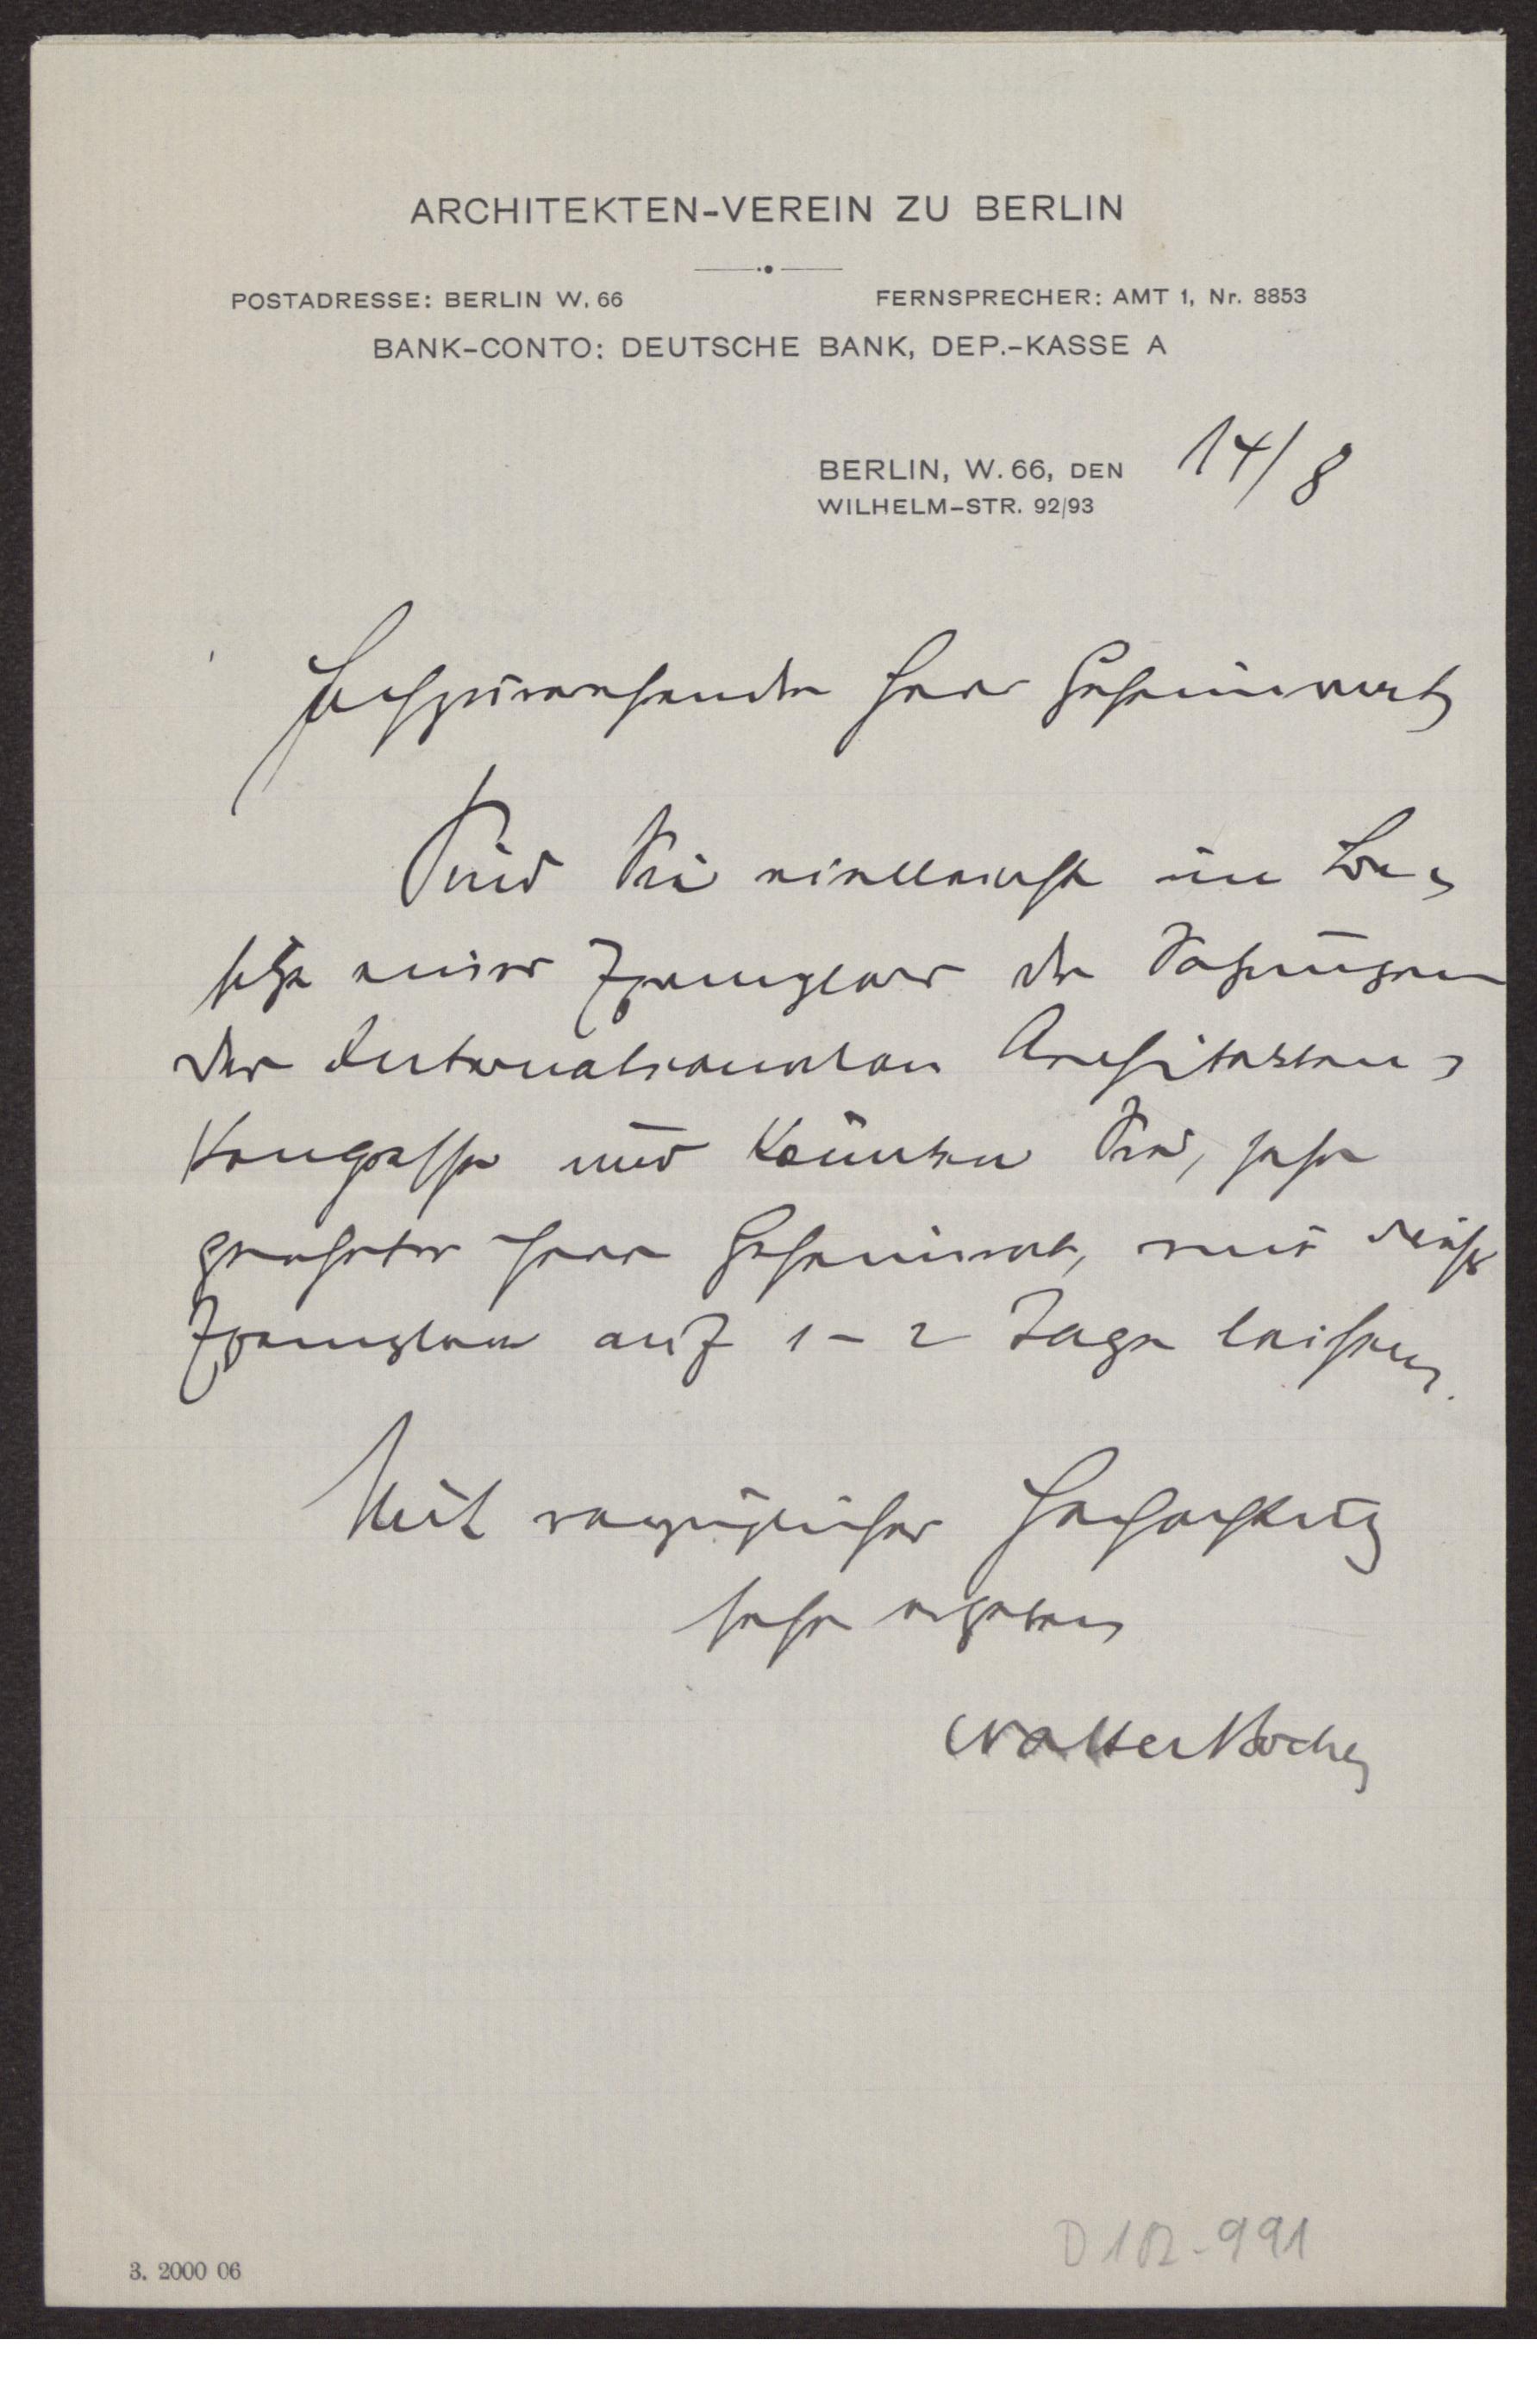 ARCHITEKTEN-VEREIN ZU BERLIN
POSTADRESSE: BERLIN W. 66 FERNSPRECHER: AMT 1, Nr. 8853
BANK-CONTO: DEUTSCHE BANK, DEP.-KASSE A
BERLIN, W. 66, DEN 14/8
WILHELM-STR. 92/93
Hochzuverehrender Herr Geheimrat
Sind Sie vielleicht im Be-
sitze eines Exemplars der Satzungen
der Internationalen Architekten-
Kongresse und könnten Sie, sehr
geehrter Herr Geheimrat, mir dieses
Exemplar auf 1-2 Tage leihen.
Mit vorzüglicher Hochachtung
sehr ergebenst
Walter
3. 2000 06
D 102-991